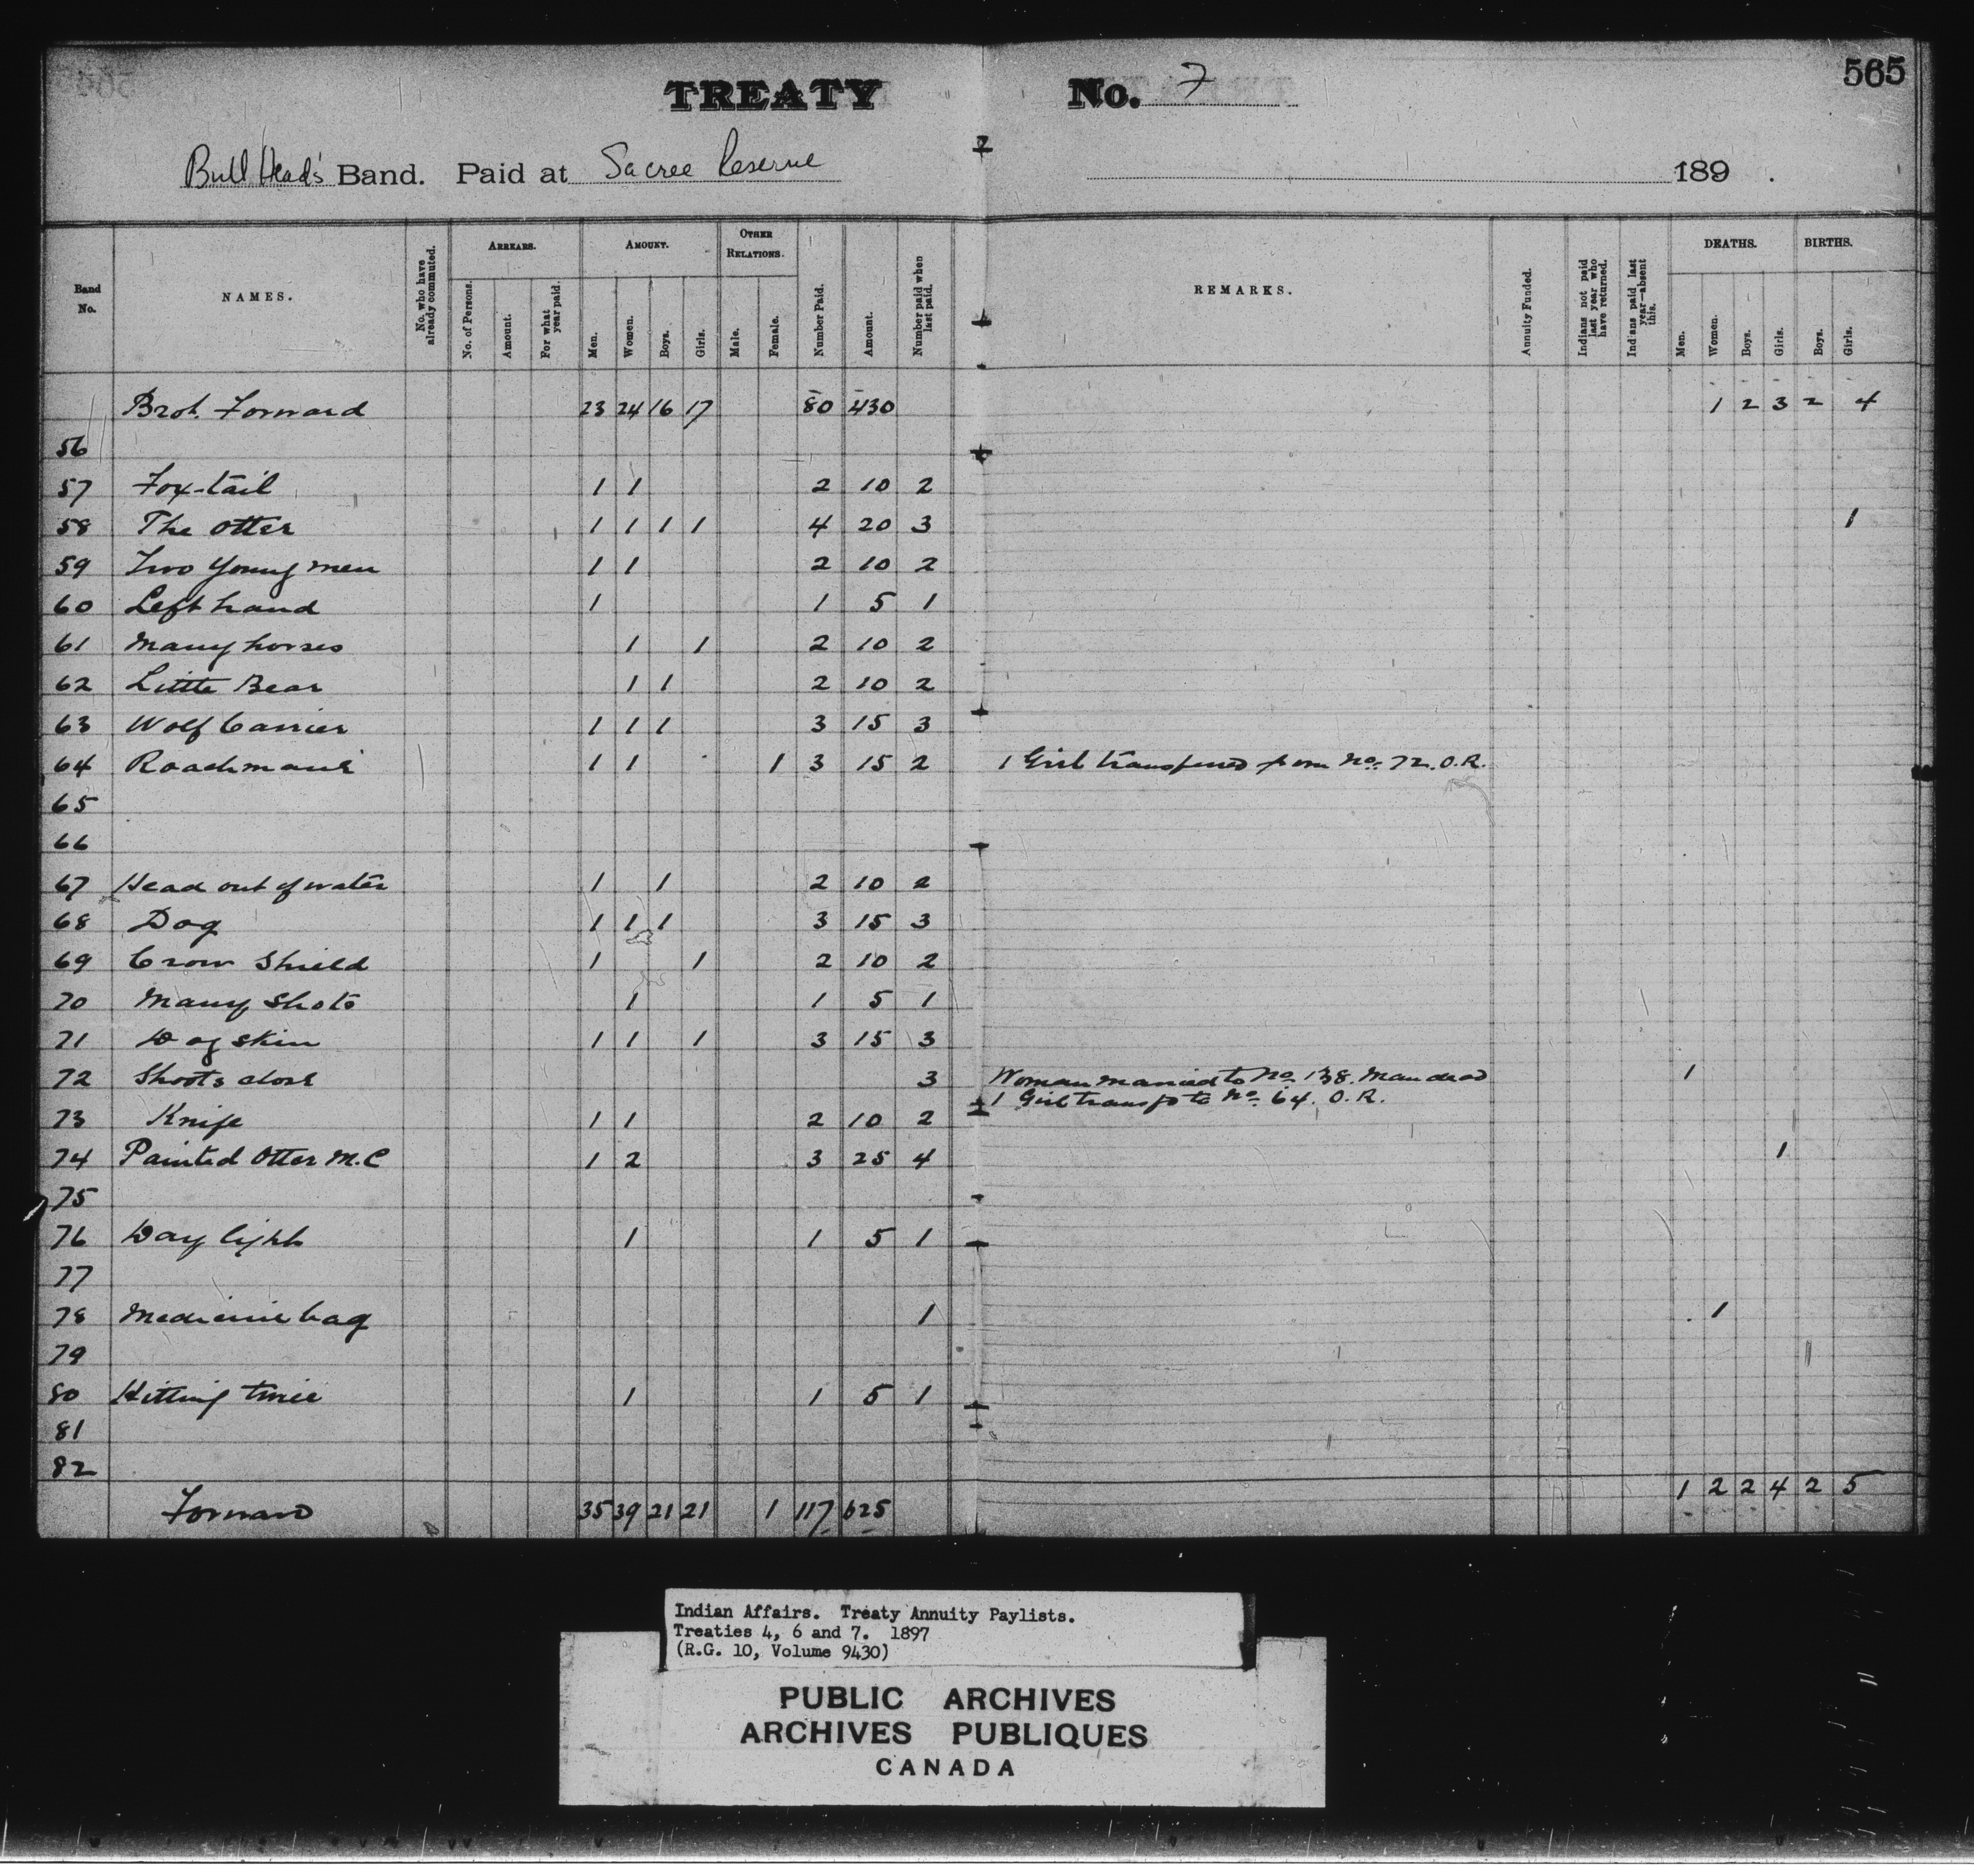 565
TREATY No. 7
Bull Head's Band. Paid at Sacree Reserve 189 .
Band No. NAMES. No. who have already commuted. ARREARS. No. of Persons. Amount. For what year paid. AMOUNT. Men. Women. Boys. Girls. OTHER RELATIONS. Male. Female. Number Paid. Amount. Number paid when last paid. REMARKS. Annuity Funded. Indians not paid last year who have returned. Indians paid last year—absent this. DEATHS. Men. Women. Boys. Girls. BIRTHS. Boys. Girls.
Brot. Forward 23 24 16 17 80 430 1 2 3 2 4
56
57 Fox-tail 1 1 2 10 2
58 The Otter 1 1 1 1 4 20 3 1
59 Two Young men 1 1 2 10 2
60 Left hand 1 1 5 1
61 Many horses 1 1 2 10 2
62 Little Bear 1 1 2 10 2
63 Wolf Carrier 1 1 1 3 15 3
64 Roachmane 1 1 1 3 15 2 1 Girl transferred from No. 72. O.R.
65
66
67 Head out of water 1 1 2 10 2
68 Dog 1 1 1 3 15 3
69 Crow Shield 1 1 2 10 2
70 Many Shots 1 1 5 1
71 Dog skin 1 1 1 3 15 3
72 Shoots close 3 Woman married to No. 138. Man dead 1
1 Girl transfd to No. 64. O.R.
73 Knife 1 1 2 10 2
74 Painted Otter M.C 1 2 3 25 4 1
75
76 Day light 1 1 5 1
77
78 Medicine bag 1 1
79
80 Hitting twice 1 1 5 1
81
82
Forward 35 39 21 21 1 117 625 1 2 2 4 2 5
Indian Affairs. Treaty Annuity Paylists.
Treaties 4, 6 and 7. 1897
(R.G. 10, Volume 9430)
PUBLIC ARCHIVES
ARCHIVES PUBLIQUES
CANADA